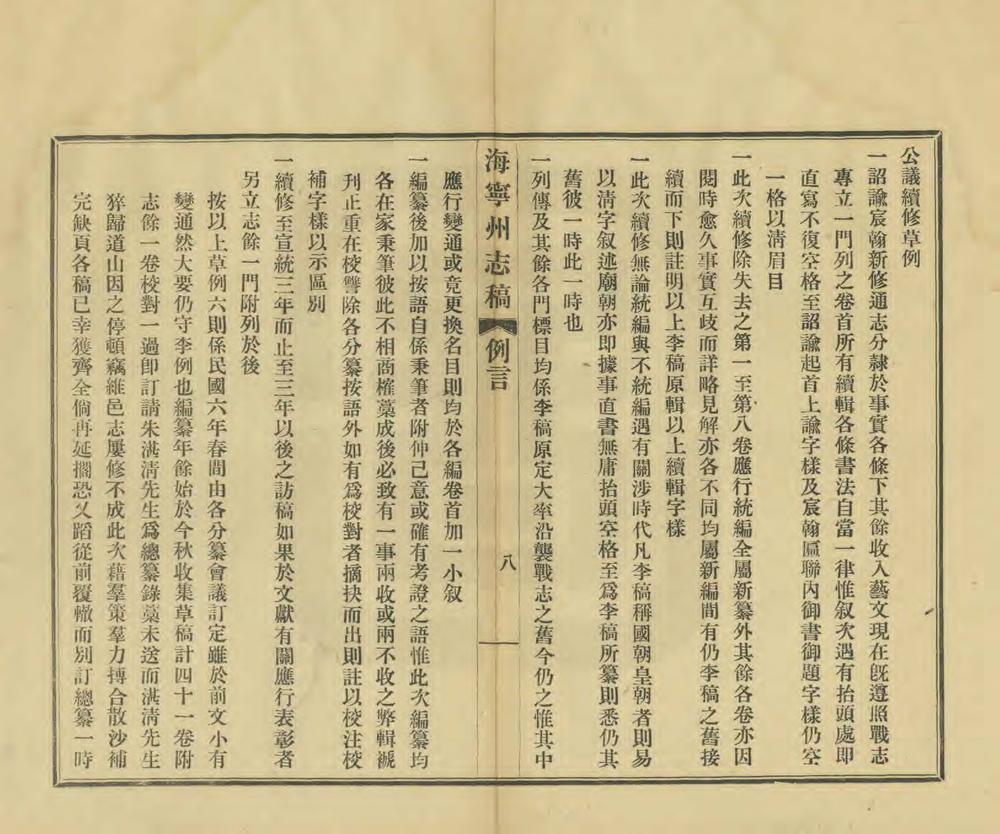 公議續修草例
一詔諭宸翰新修通志分隸於事實各條下其餘收入藝文現在旣遵照戰志
專立一門列之卷首所有續輯各條書法自當一律惟叙次遇有抬頭處即
直寫不復空格至詔諭起首上諭字樣及宸翰匾聯内御書御題字樣仍空
一格以淸眉目
一此次續修除失去之第一至第八卷應行統編全屬新纂外其餘各卷亦因
閱時愈久事實互歧而詳略見解亦各不同均屬新編間有仍李稿之舊接
續而下則註明以上李稿原輯以上續輯字樣
一此次續修無論統編與不統編遇有關涉時代凡李稿稱國朝皇朝者則易
以淸字叙述廟朝亦即據事直書無庸抬頭空格至爲李稿所纂則悉仍其
舊彼一時此一時也
一列傳及其餘各門標目均係李稿原定大率沿襲戰志之舊今仍之惟其中
海寧州志稿 例言 八
應行變通或竟更換名目則均於各編卷首加一小叙
一編纂後加以按語自係秉筆者附伸己意或確有考證之語惟此次編纂均
各在家秉筆彼此不相商榷藁成後必致有一事兩收或兩不收之弊輯褫
刋止重在校讐除各分纂按語外如有爲校對者摘抉而出則註以校注校
補字樣以示區別
一續修至宣統三年而止至三年以後之訪稿如果於文獻有關應行表彰者
另立志餘一門附列於後
按以上草例六則係民國六年春間由各分纂會議訂定雖於前文小有
變通然大要仍守李例也編纂年餘始於今秋收集草稿計四十一卷附
志餘一卷校對一過卽訂請朱淇淸先生爲總纂錄藁未送而淇淸先生
猝歸道山因之停頓竊維邑志屢修不成此次藉羣策羣力摶合散沙補
完缺頁各稿已幸獲齊全倘再延擱恐又蹈從前覆轍而別訂總纂一時